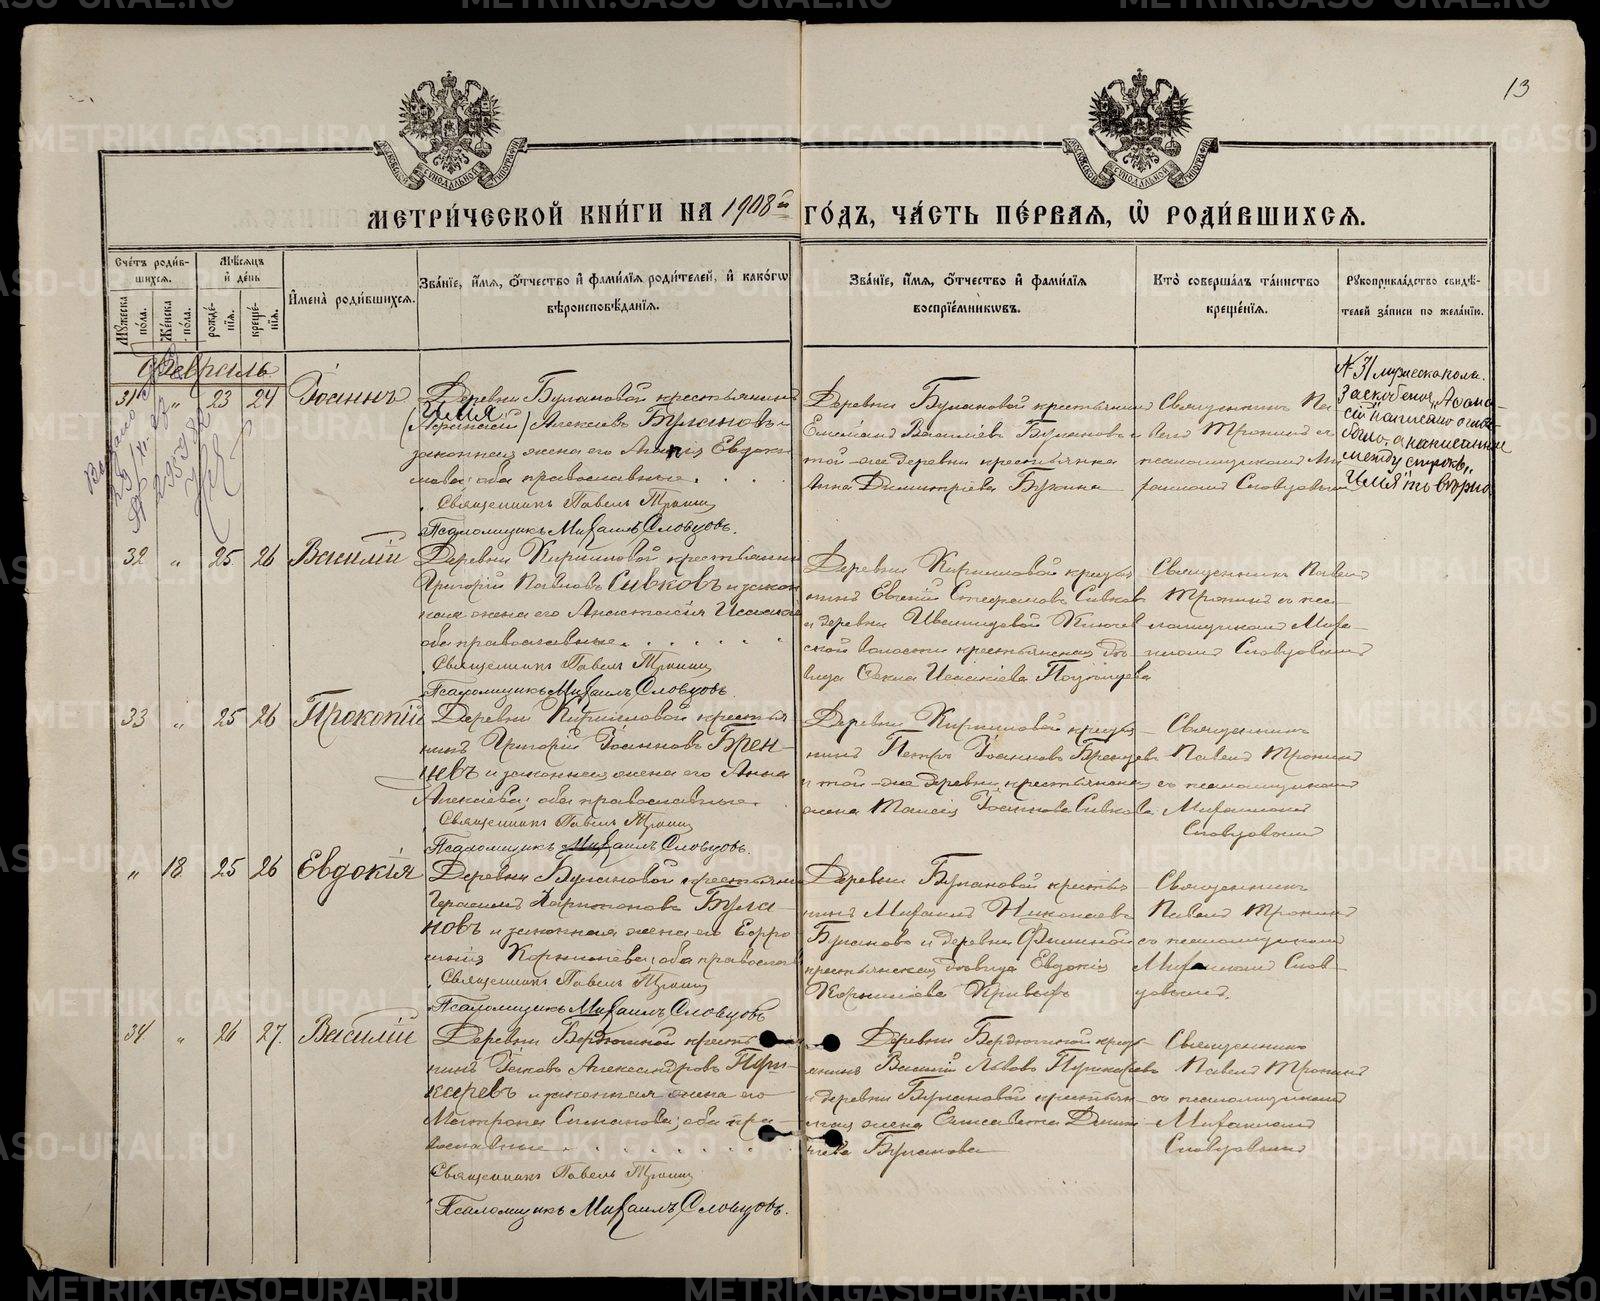 13
МЕТРИ́ЧЕСКОЙ КНИ́ГИ НА 1908й ГО́ДЪ, ЧА́СТЬ ПЕ́РВАЯ, Ѡ РОДИ́ВШИХСЯ.
Сче́тъ роди́в-шихся.
Мꙋжеска по́ла.
Же́нска по́ла.
Мѣ́сяцъ и де́нь
рожде́-нїя.
креще́-нїя.
И҆мена̀ роди́вшихся.
Зва́нїе, и҆́мя, ѻ҆́тчество и҆ фами́лїя роди́телей, и҆ како́гѡ вѣроисповѣ́данїя.
Зва́нїе, и҆́мя, ѻ҆́тчество и҆ фами́лїя воспрїе́мникѡвъ.
Кто̀ соверша́лъ та́инство креще́нїя.
Рꙋкоприкла́дство свидѣ́-телей за́писи по жела́нїю.
Февраль
31 " 23 24 Іоаннъ
Деревни Булановой крестьянинъ
Илія
(Афанасій) Алексѣевъ Булановъ и
законная жена его Евдоки
мова; оба православные.
Священникъ Павелъ Тронинъ
Псаломщикъ Михаилъ Словцовъ.
Деревни Булановой крестьянинъ
Емеліанъ Василіевъ Булановъ и
той-же деревни крестьянка
Анна Димитріева Букина
Священникъ Па
велъ Тронинъ съ
псаломщикомъ Ми
хаиломъ Словцовымъ
№ 31 мужеска пола.
Заключенное "Афана-
сій" написано
а написанное
между строкъ "
Илія" то вѣрно
32 " 25 26 Василій
Деревни Кирилловой крестьянинъ
Григорій Павловъ Сивковъ и закон
ная жена его Анастасія Исааков
оба православные.
Священникъ Павелъ Тронинъ
Псаломщикъ Михаилъ Словцовъ.
Деревни Кирилловой крестья
нинъ Евгеній Стефановъ Сивковъ
и деревни Ключев
ской волости крестьянская дѣ
вица Ѳекла Исаакіева
Священникъ Павелъ
Тронинъ съ пса-
ломщикомъ Миха-
иломъ Словцовымъ
33 " 25 26 Прокопій
Деревни Кирилловой крестья
нинъ Григорій Іоанновъ Брен-
цевъ и законная жена его Анна
Алексіева; оба православные.
Священникъ Павелъ Тронинъ
Псаломщикъ Михаилъ Словцовъ.
Деревни Кирилловой крестья-
нинъ Петръ Іоанновъ Бренцевъ
и той-же деревни крестьянск
жена Таисія Іоаннова Сивкова
Священникъ
Павелъ Тронинъ
съ псаломщикомъ
Михаиломъ
Словцовымъ
" 18 25 26 Евдокія
Деревни Булановой крестьянинъ
Герасимъ Харитоновъ Була-
новъ и законная жена его Евфро
синія Корниліева; оба православ
Священникъ Павелъ Тронинъ
Псаломщикъ Михаилъ Словцовъ
Деревни Булановой крестья-
нинъ Михаилъ Николаевъ
Булановъ и деревни
крестьянская дѣвица Евдокія
Корниліева Кривыхъ
Священникъ
Павелъ Тронинъ
съ псаломщикомъ
Михаиломъ Слов-
цовымъ.
34 " 26 27. Василій
Деревни Бердюгиной крестья
нинъ Іаковъ Александровъ Пуш-
каревъ и законная жена его
Матрона Симонова; оба пра-
вославные
Священникъ Павелъ Тронинъ
Псаломщикъ Михаилъ Словцовъ.
Деревни Бердюгиной кресть-
янинъ Василій Львовъ Пушкаревъ
и деревни Булановой крестьян-
ская жена Елисавета
Буланова
Священникъ
Павелъ Тронинъ
съ псаломщикомъ
Михаиломъ
Словцовымъ
METRIKI.GASO-URAL.RU